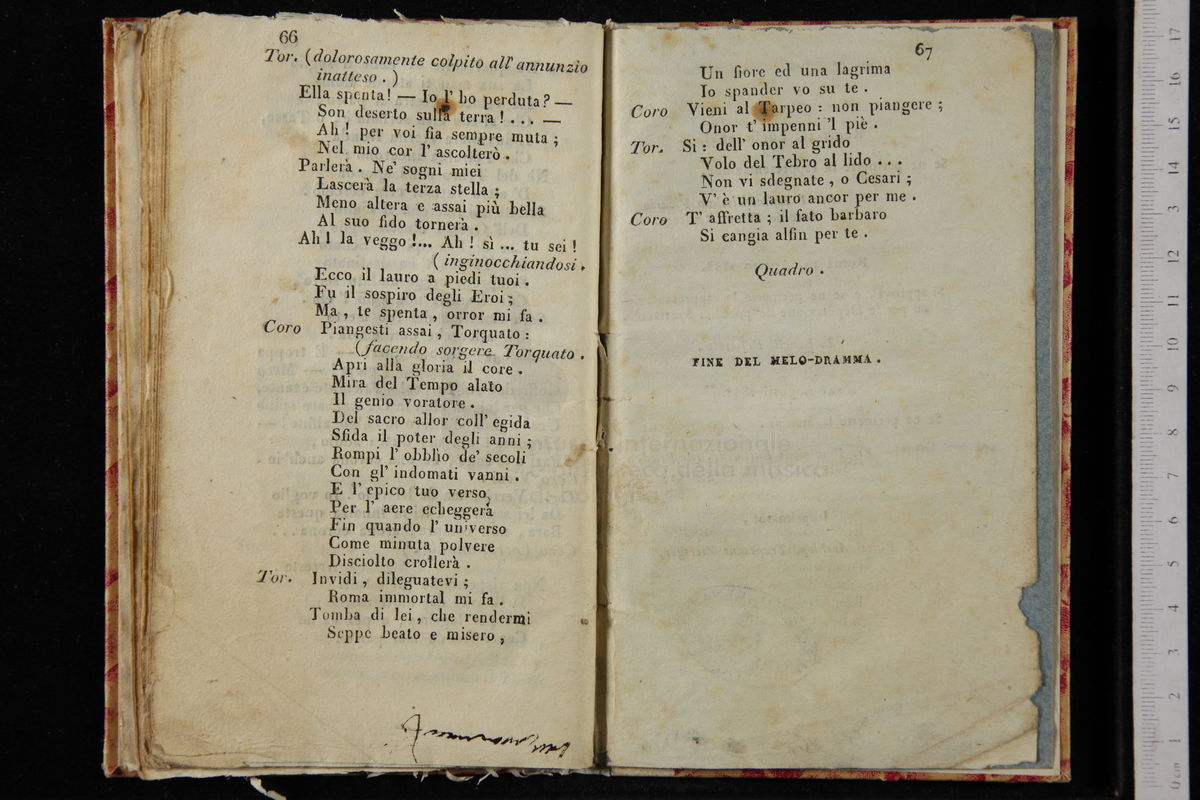 66
Tor. (dolorosamente colpito all' annunzio
inatteso . )
Ella spenta! — Io l' ho perduta? —
Son deserto sulla terra ! . . . —
Ah ! per voi fia sempre muta ;
Nel mio cor l' ascolterò .
Parlerà . Ne' sogni miei
Lascerà la terza stella ;
Meno altera e assai più bella
Al suo fido tornerà .
Ah ! la veggo !... Ah ! sì ... tu sei !
( inginocchiandosi .
Ecco il lauro a piedi tuoi .
Fu il sospiro degli Eroi ;
Ma , te spenta , orror mi fa .
Coro Piangesti assai , Torquato :
(facendo sorgere Torquato .
Apri alla gloria il core .
Mira del Tempo alato
Il genio voratore .
Del sacro allor coll' egida
Sfida il poter degli anni ;
Rompi l' obblio de' secoli
Con gl' indomati vanni .
E l' epico tuo verso
Per l' aere echeggerà
Fin quando l' universo
Come minuta polvere
Disciolto crollerà .
Tor. Invidi , dileguatevi ;
Roma immortal mi fa .
Tomba di lei , che rendermi
Seppe beato e misero ,
67
Un fiore ed una lagrima
Io spander vo su te .
Coro Vieni al Tarpeo : non piangere ;
Onor t' impenni 'l piè .
Tor. Si : dell' onor al grido
Volo del Tebro al lido . . .
Non vi sdegnate , o Cesari ;
V' è un lauro ancor per me .
Coro T' affretta ; il fato barbaro
Si cangia alfin per te .
Quadro .
FINE DEL MELO-DRAMMA .
internazionale
biblioteca della musica
17
16
15
14
13
12
11
10
9
8
7
6
5
4
3
2
1
0 cm